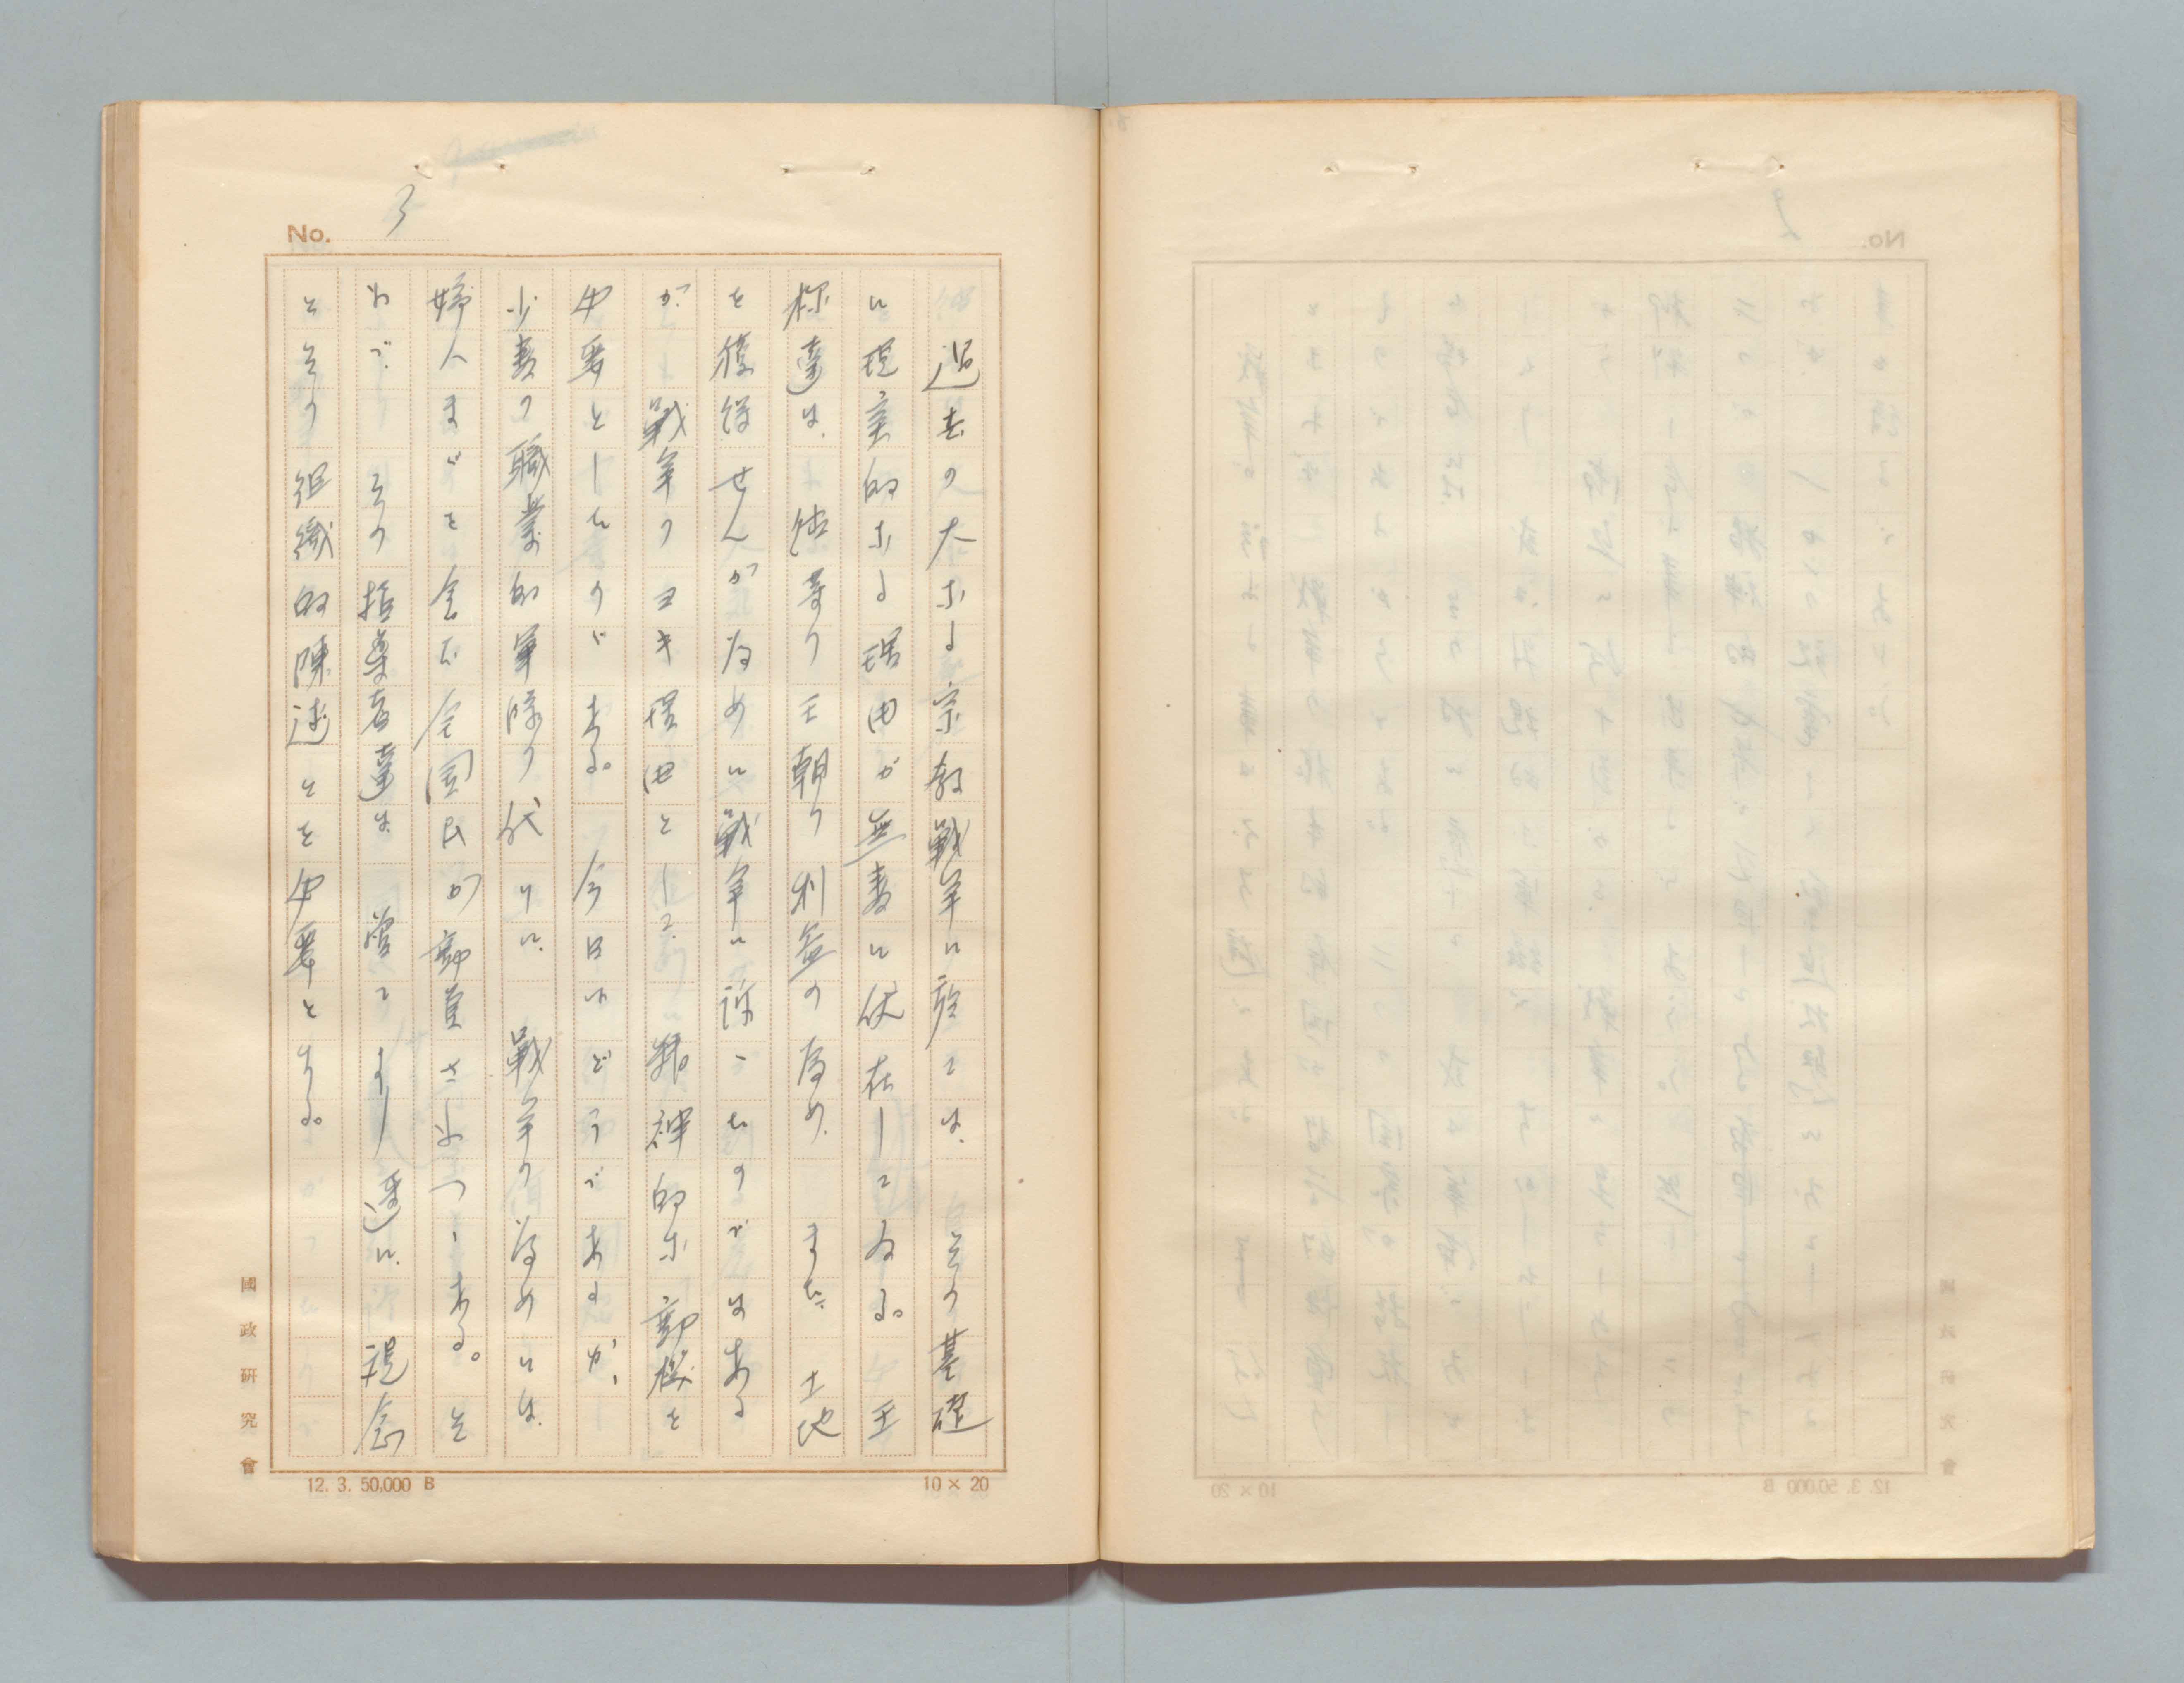 No. 3
過去の大なる宗教戦争に於ては、その基礎
に現実的なる理由が無数に伏在してゐる。王
様達は、彼等の王朝の利益の為め、また、土地
を獲得せんが為めに戦争に訴へたのではある
が、戦争のヨキ理由として、精神的な動機を
必要としたのである。今日はどうであるか、
少数の職業的軍隊の代りに、戦争の為めには、
婦人までを含む全国民が動員されつゝある。そ
れで、その指導者達は、曾てまし通に、理念
とその組織的陳述とを必要とする。
國政研究會
12. 3. 50,000 B
10 × 20